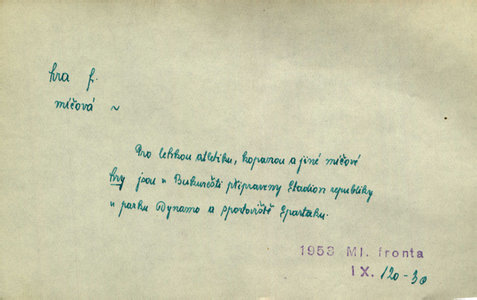 hra f.
míčová ~
Pro lehkou atletiku, kopanou a jiné míčové
hry jsou v Bukurešti připraveny Stadion republiky
v parku Dynamo a sportoviště Spartaku.
1953 Ml. fronta
IX. 120-30